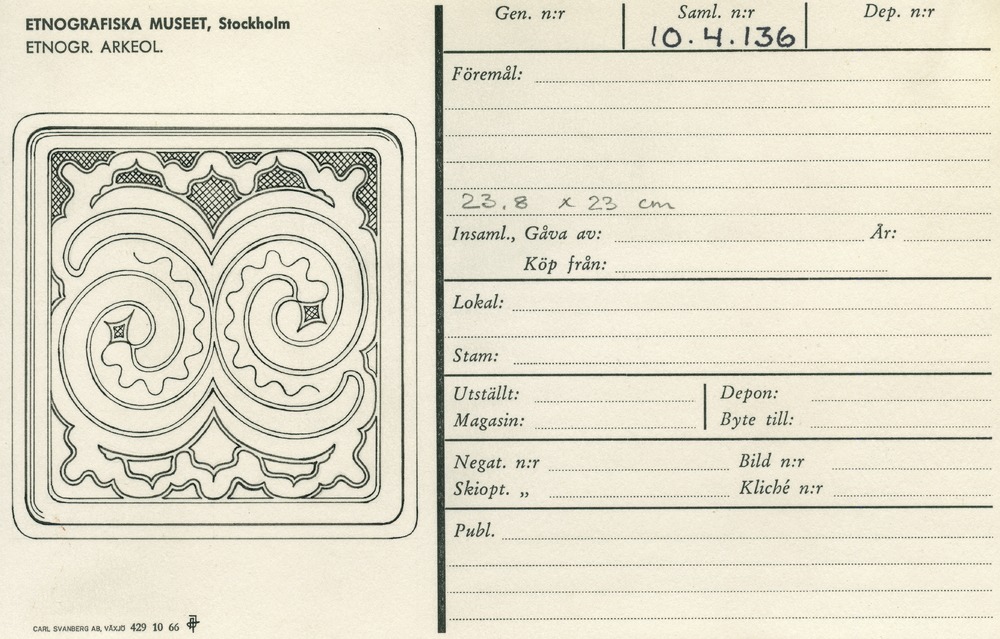 ETNOGRAFISKA MUSEET, Stockholm
ETNOGR. ARKEOL.
Gen. n:r
Saml. n:r
Dep. n:r
10.4.136
Föremål:
23.8 x 23 cm
Insaml., Gåva av:
År:
Köp från:
Lokal:
Stam:
Utställt:
Depon:
Magasin:
Byte till:
Negat. n:r
Bild n:r
Skiopt. „
Kliché n:r
Publ.
CARL SVANBERG AB, VÄXJÖ 429 10 66